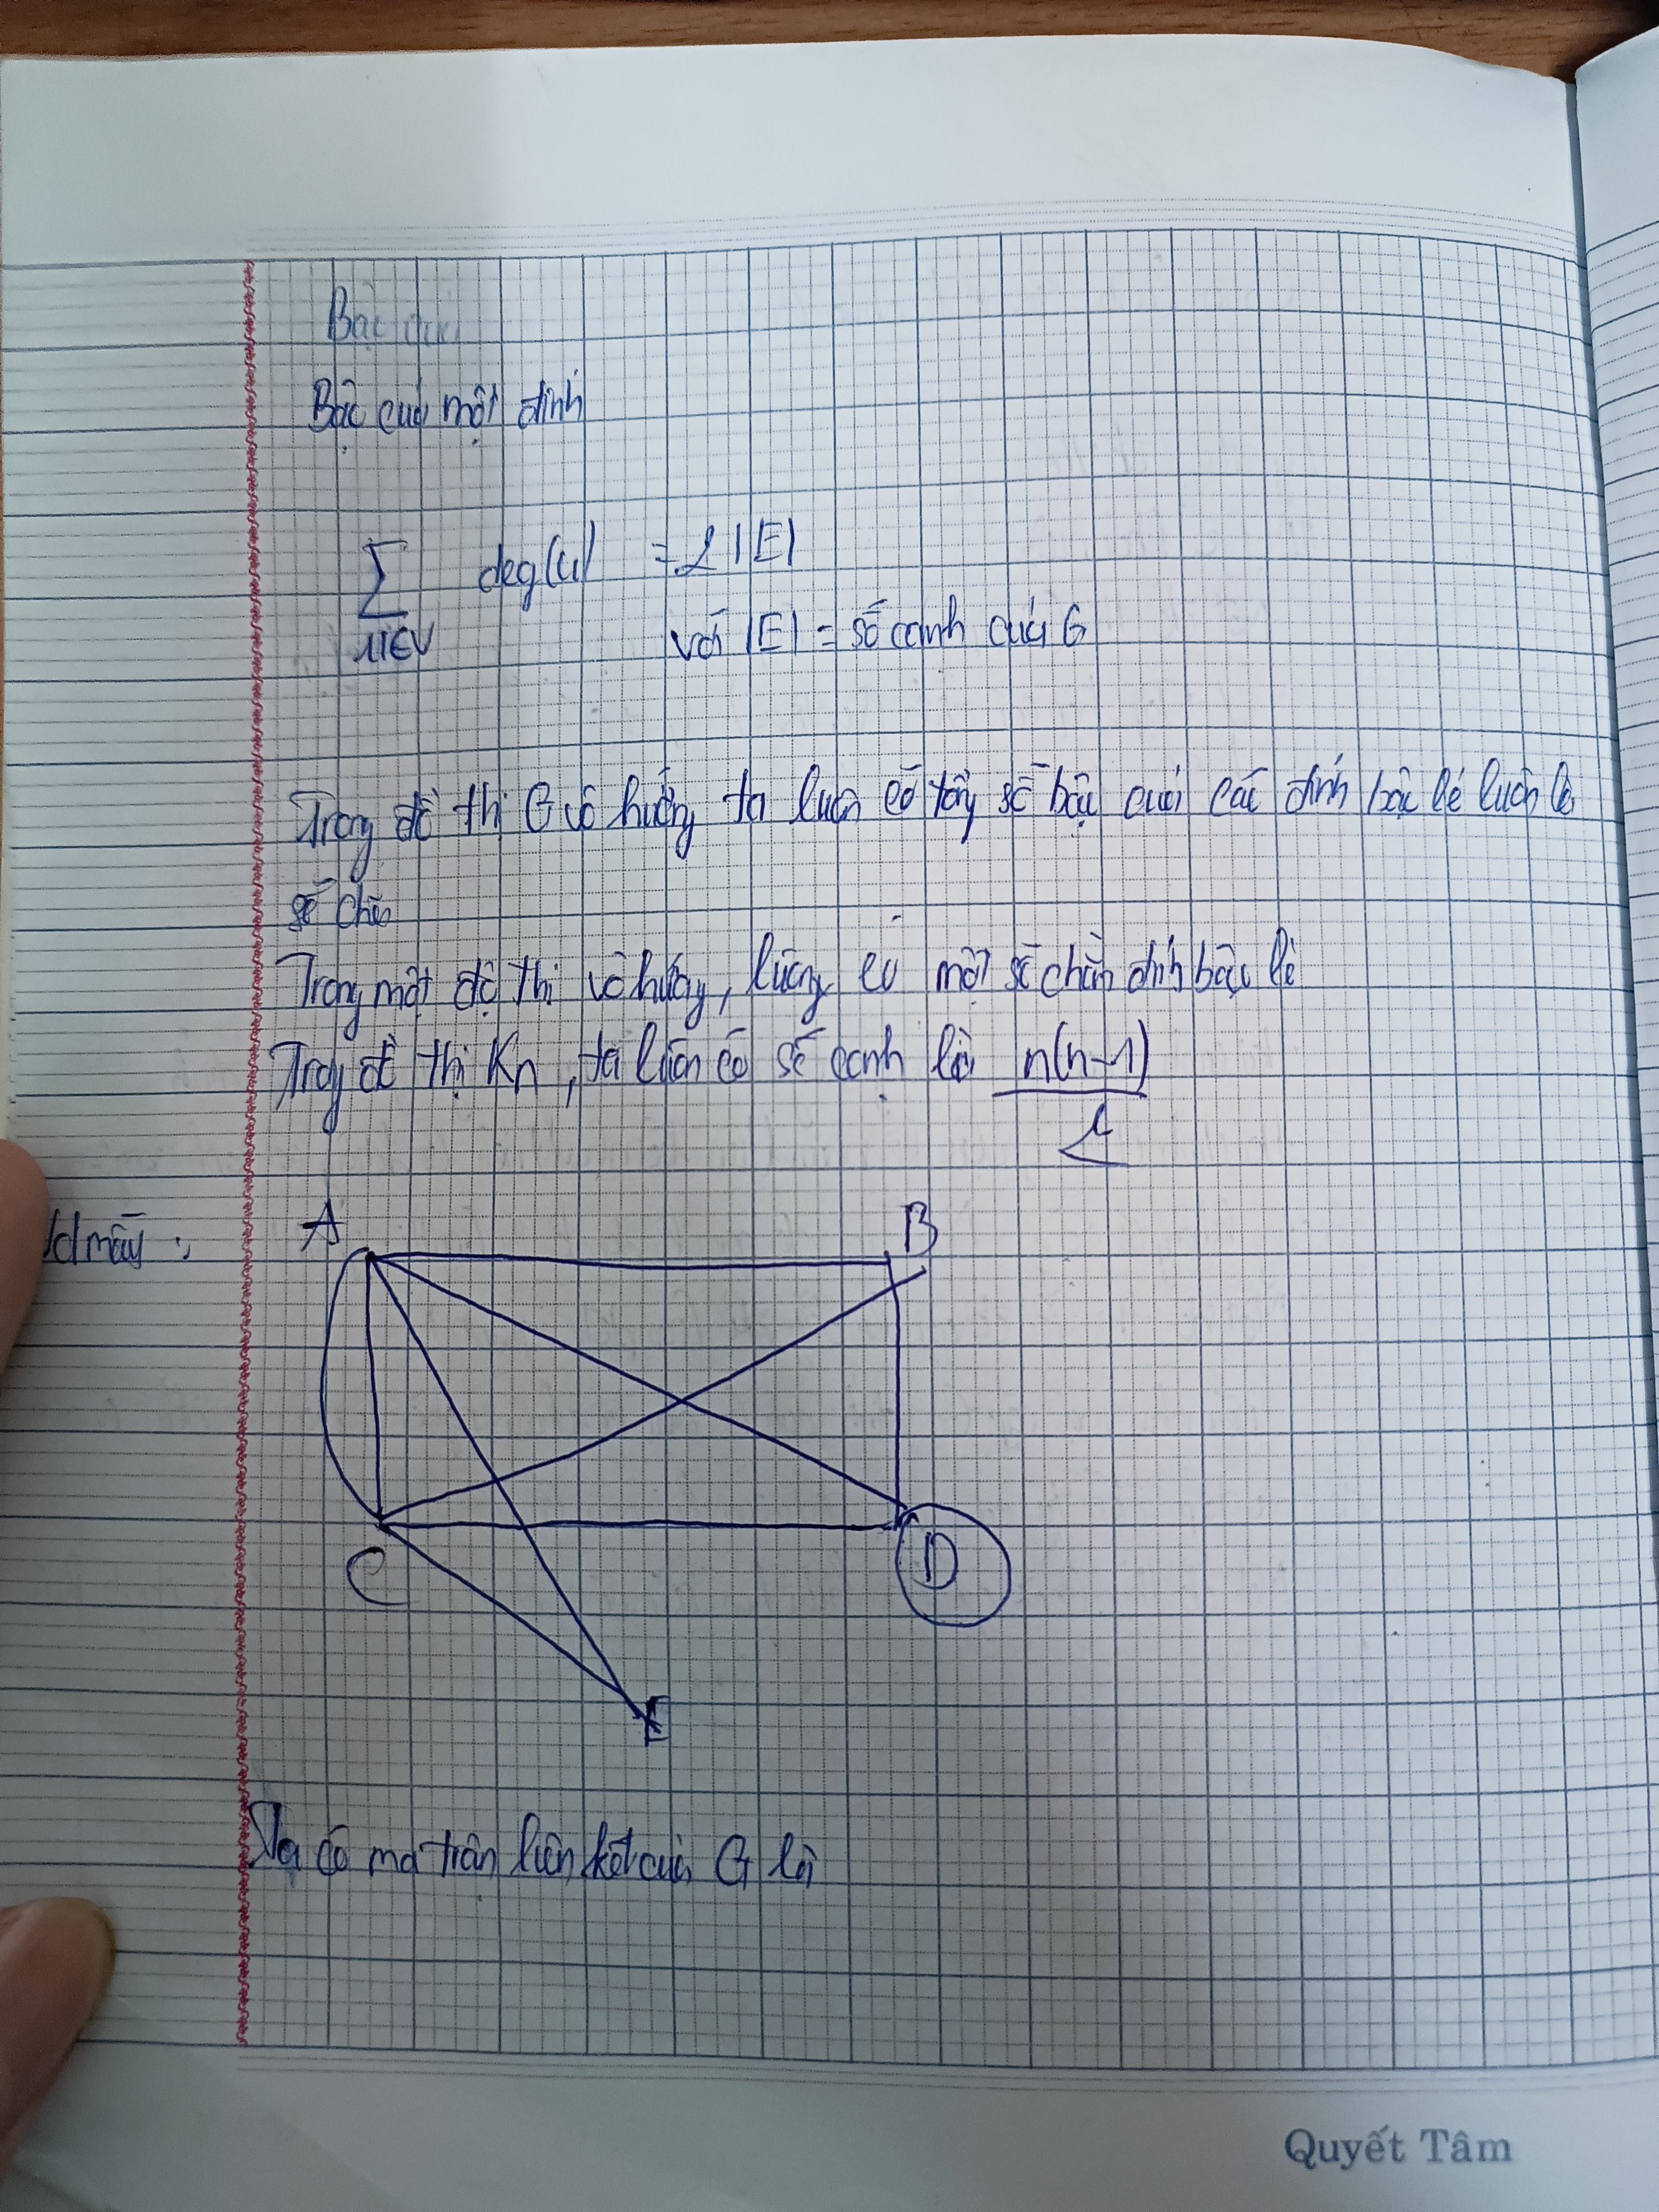 Bậc của
Bậc của một đỉnh
∑ deg(u) = 2|E|
u∈V với |E| = số cạnh của G
Trong đồ thị G vô hướng ta luôn có tổng số bậc của các đỉnh bậc lẻ luôn là
số chẵn
Trong một đồ thị vô hướng, lượng có một số chẵn đỉnh bậc lẻ
Trong đồ thị Kn, ta luôn có số cạnh là n(n-1)
2
A B
C D
E
Ta có ma trận liên kết của G là
Quyết Tâm